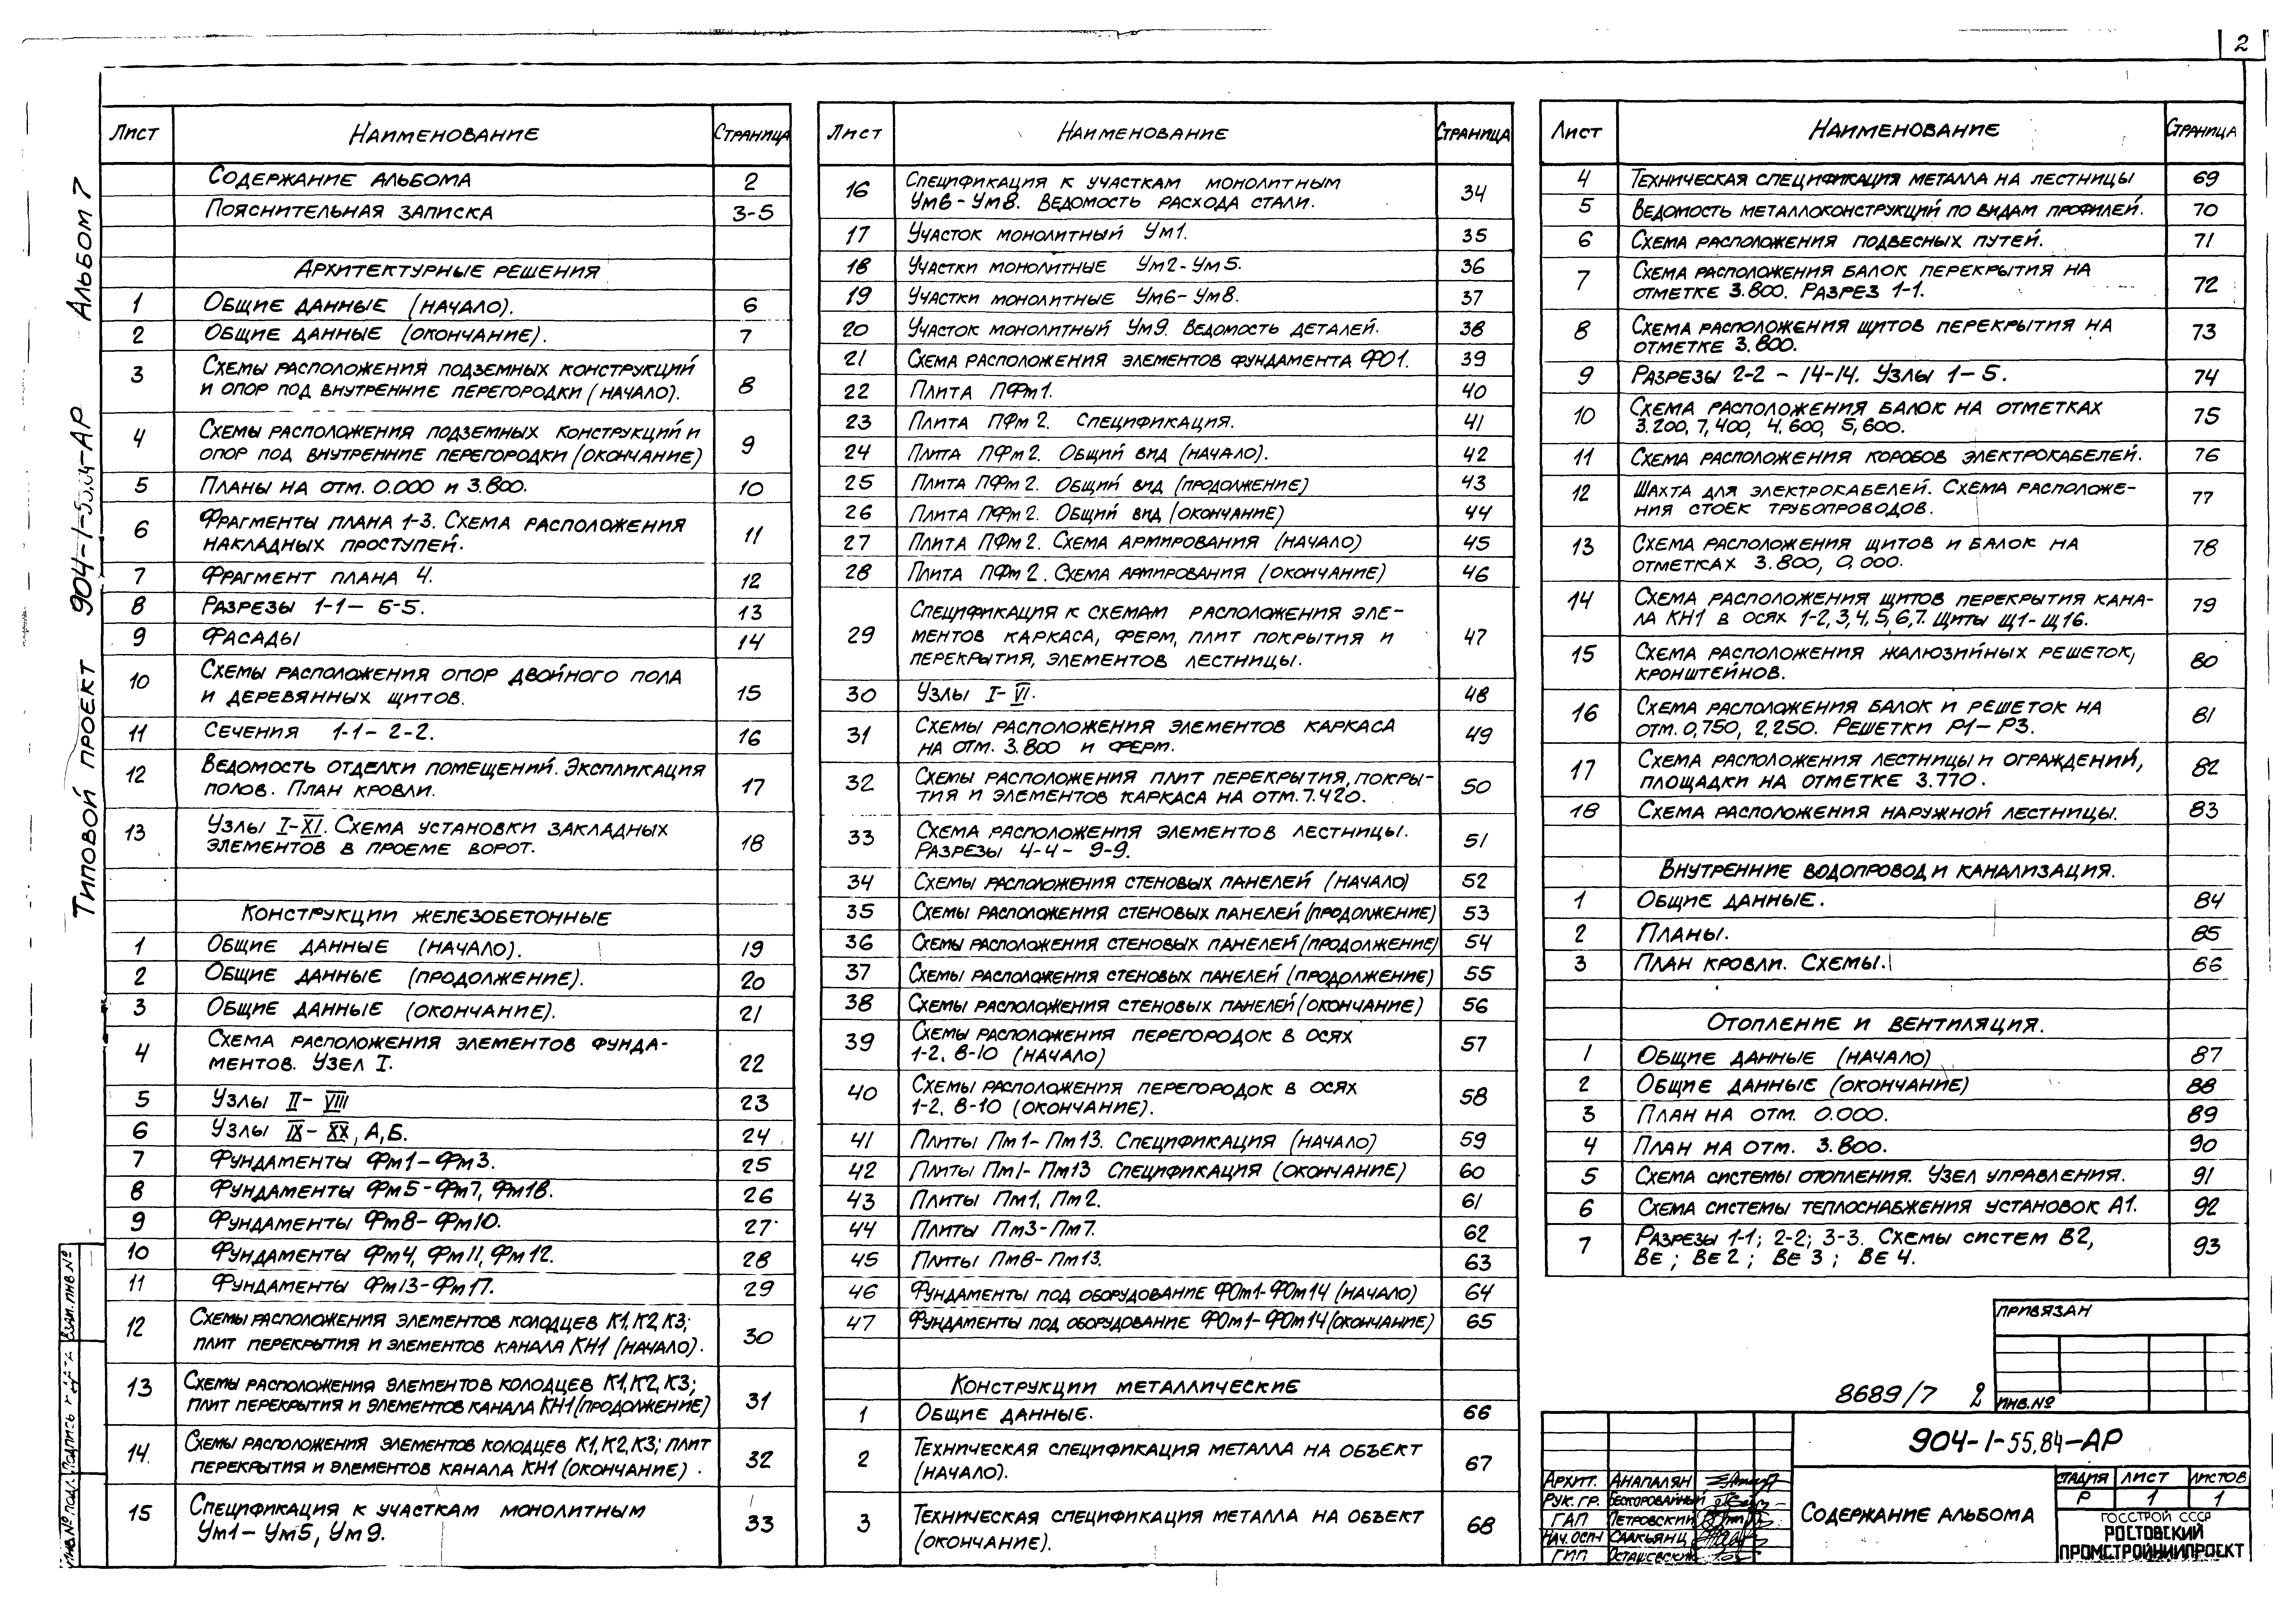 2
Типовой проект 904-1-55.84-АР Альбом 7
Лист Наименование Страница
Содержание альбома 2
Пояснительная записка 3-5
Архитектурные решения
1 Общие данные (начало). 6
2 Общие данные (окончание). 7
3 Схемы расположения подземных конструкций
и опор под внутренние перегородки (начало). 8
4 Схемы расположения подземных конструкций и
опор под внутренние перегородки (окончание) 9
5 Планы на отм. 0.000 и 3.800. 10
6 Фрагменты плана 1-3. Схема расположения
накладных проступей. 11
7 Фрагмент плана 4. 12
8 Разрезы 1-1 – 5-5. 13
9 Фасады 14
10 Схемы расположения опор двойного пола
и деревянных щитов. 15
11 Сечения 1-1 - 2-2. 16
12 Ведомость отделки помещений. Экспликация
полов. План кровли. 17
13 Узлы I-XI. Схема установки закладных
элементов в проеме ворот. 18
Конструкции железобетонные
1 Общие данные (начало). 19
2 Общие данные (продолжение). 20
3 Общие данные (окончание). 21
4 Схема расположения элементов фунда-
ментов. Узел I. 22
5 Узлы II- VIII 23
6 Узлы IX- XX, А,Б. 24
7 Фундаменты Фм1-Фм3. 25
8 Фундаменты Фм5-Фм7, Фм18. 26
9 Фундаменты Фм8-Фм10. 27
10 Фундаменты Фм4, Фм11, Фм12. 28
11 Фундаменты Фм13-Фм17. 29
12 Схемы расположения элементов колодцев К1,К2,К3;
плит перекрытия и элементов канала КН1 (начало). 30
13 Схемы расположения элементов колодцев К1,К2,К3;
плит перекрытия и элементов канала КН1 (продолжение) 31
14. Схемы расположения элементов колодцев К1,К2,К3; плит
перекрытия и элементов канала КН1 (окончание). 32
15 Спецификация к участкам монолитным
Ум1- Ум5, Ум9. 33
Лист Наименование Страница
16 Спецификация к участкам монолитным
Ум6-Ум8. Ведомость расхода стали. 34
17 Участок монолитный Ум1. 35
18 Участки монолитные Ум2-Ум5. 36
19 Участки монолитные Ум6-Ум8. 37
20 Участок монолитный Ум9. Ведомость деталей. 38
21 Схема расположения элементов фундамента ФО1. 39
22 Плита ПФм1. 40
23 Плита ПФм2. Спецификация. 41
24 Плита ПФм2. Общий вид (начало). 42
25 Плита ПФм2. Общий вид (продолжение) 43
26 Плита ПФм2. Общий вид (окончание) 44
27 Плита ПФм2. Схема армирования (начало) 45
28 Плита ПФм2. Схема армирования (окончание) 46
29 Спецификация к схемам расположения эле-
ментов каркаса, ферм, плит покрытия и
перекрытия, элементов лестницы. 47
30 Узлы I- VI. 48
31 Схемы расположения элементов каркаса
на отм. 3.800 и ферм. 49
32 Схемы расположения плит перекрытия, покры-
тия и элементов каркаса на отм. 7.420. 50
33 Схема расположения элементов лестницы.
Разрезы 4-4 - 9-9. 51
34 Схемы расположения стеновых панелей (начало) 52
35 Схемы расположения стеновых панелей (продолжение) 53
36 Схемы расположения стеновых панелей (продолжение) 54
37 Схемы расположения стеновых панелей (продолжение) 55
38 Схемы расположения стеновых панелей (окончание) 56
39 Схемы расположения перегородок в осях
1-2, 8-10 (начало) 57
40 Схемы расположения перегородок в осях
1-2, 8-10 (окончание). 58
41 Плиты Пм1-Пм13. Спецификация (начало) 59
42 Плиты Пм1-Пм13 Спецификация (окончание) 60
43 Плиты Пм1, Пм2. 61
44 Плиты Пм3-Пм7. 62
45 Плиты Пм8-Пм13. 63
46 Фундаменты под оборудование ФОм1-ФОм14 (начало) 64
47 Фундаменты под оборудование ФОм1-ФОм14 (окончание) 65
Конструкции металлические
1 Общие данные. 66
2 Техническая спецификация металла на объект
(начало). 67
3 Техническая спецификация металла на объект
(окончание). 68
Лист Наименование Страница
4 Техническая спецификация металла на лестницы 69
5 Ведомость металлоконструкций по видам профилей. 70
6 Схема расположения подвесных путей. 71
7 Схема расположения балок перекрытия на
отметке 3.800. Разрез 1-1. 72
8 Схема расположения щитов перекрытия на
отметке 3.800. 73
9 Разрезы 2-2 – 14-14. Узлы 1-5. 74
10 Схема расположения балок на отметках
3.200, 7,400, 4,600, 5,600. 75
11 Схема расположения коробов электрокабелей. 76
12 Шахта для электрокабелей. Схема расположе-
ния стоек трубопроводов. 77
13 Схема расположения щитов и балок на
отметках 3.800, 0,000. 78
14 Схема расположения щитов перекрытия кана-
ла КН1 в осях 1-2,3,4,5,6,7. Щиты Щ1-Щ16. 79
15 Схема расположения жалюзийных решеток,
кронштейнов. 80
16 Схема расположения балок и решеток на
отм. 0,750, 2,250. Решетки Р1-Р3. 81
17 Схема расположения лестницы и ограждений,
площадки на отметке 3.770. 82
18 Схема расположения наружной лестницы. 83
Внутренние водопровод и канализация.
1 Общие данные. 84
2 Планы. 85
3 План кровли. Схемы. 86
Отопление и вентиляция.
1 Общие данные (начало) 87
2 Общие данные (окончание) 88
3 План на отм. 0.000. 89
4 План на отм. 3.800. 90
5 Схема системы отопления. Узел управления. 91
6 Схема системы теплоснабжения установок А1. 92
7 Разрезы 1-1; 2-2; 3-3. Схемы систем В2,
ВЕ; ВЕ2; ВЕ3; ВЕ4. 93
Привязан
Инв.№
8689/7 2
904-1-55.84-АР
Архит. Анапалян
Рук. гр. Бескоровайный
ГАП Петровский
Нач. осп-1 Саакьянц
ГИП Осташевский
Содержание альбома
Стадия Лист Листов
Р 1 1
Госстрой СССР
Ростовский
Промстройниипроект
Инв.№ подл. Подпись и дата Взам. инв.№